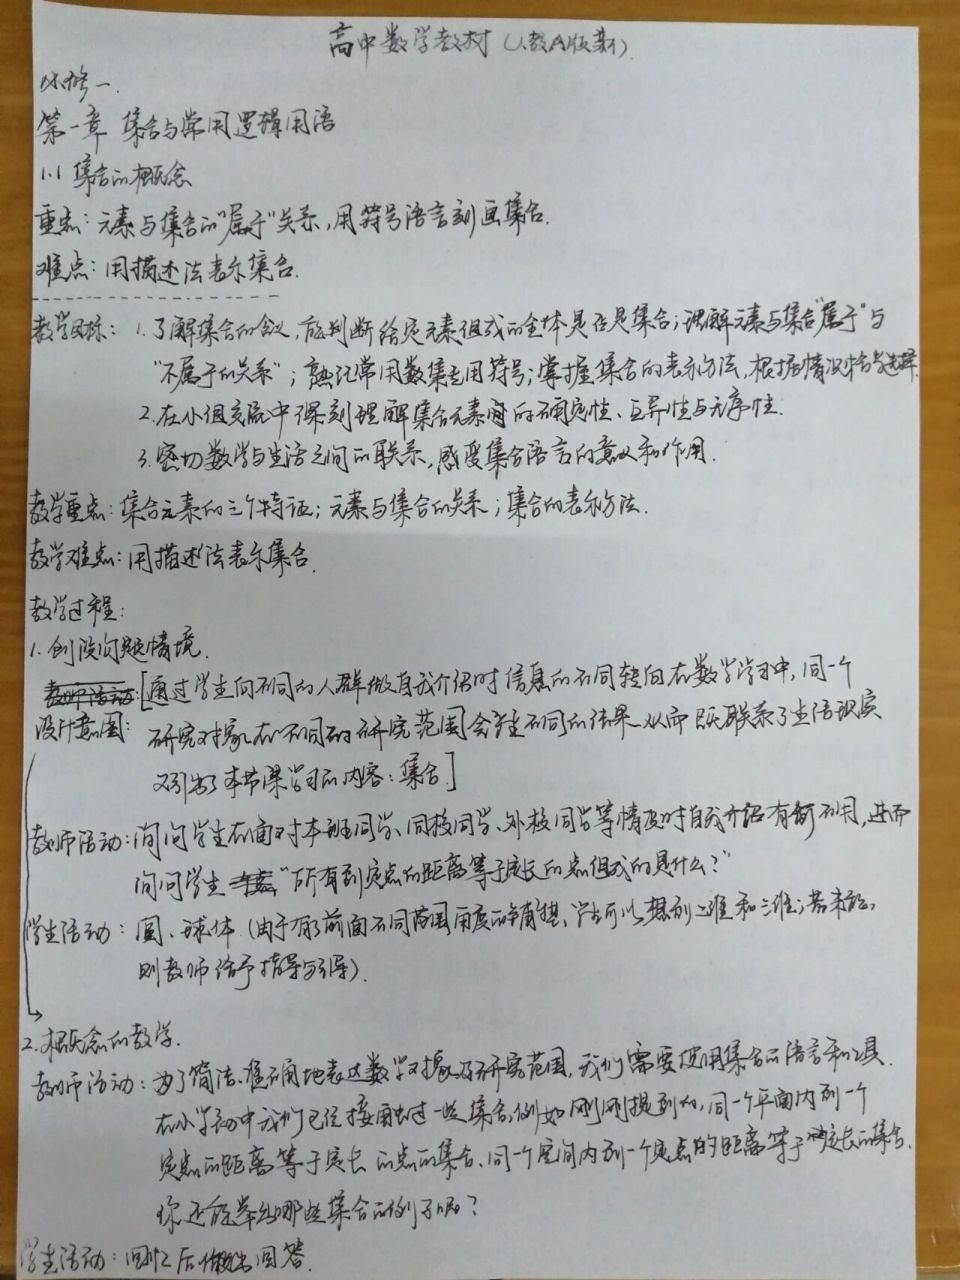 高中数学教材(人教A版新)
必修一.
第一章 集合与常用逻辑用语
1.1 集合的概念
重点:元素与集合的"属于"关系,用符号语言刻画集合.
难点:用描述法表示集合.
教学目标:1.了解集合的含义,能判断给定元素组成的全体是否是集合;理解元素与集合"属于"与
"不属于的关系";熟记常用数集专用符号;掌握集合的表示方法,根据情况恰当选择.
2.在小组交流中深刻理解集合元素间的确定性、互异性与无序性.
3.密切数学与生活之间的联系,感受集合语言的意义和作用.
教学重点:集合元素的三个特征;元素与集合的关系;集合的表示方法.
教学难点:用描述法表示集合.
教学过程:
1.创设问题情境.
设计意图:[通过学生向不同的人群做自我介绍时信息的不同转向在数学学习中,同一个
研究对象在不同的研究范围会产生不同的结果.从而既联系了生活现实
又引出了本节课学习的内容:集合.]
教师活动:询问学生在面对本班同学、同校同学、外校同学等情况时自我介绍有何不同,进而
询问学生"所有到定点的距离等于定长的点组成的是什么?"
学生活动:圆、球体.(由于有了前面不同范围角度的铺垫,学生可以想到二维和三维;若未能,
则教师给予指导与引导).
2.概念的教学.
教师活动:为了简洁、准确地表达数学对象及研究范围,我们需要使用集合的语言和工具.
在小学初中我们已经接触过一些集合,例如刚刚提到的,同一个平面内到一个
定点的距离等于定长的点的集合、同一个空间内到一个定点的距离等于定长的集合.
你还能举出哪些集合的例子呢?
学生活动:回忆后做出回答.